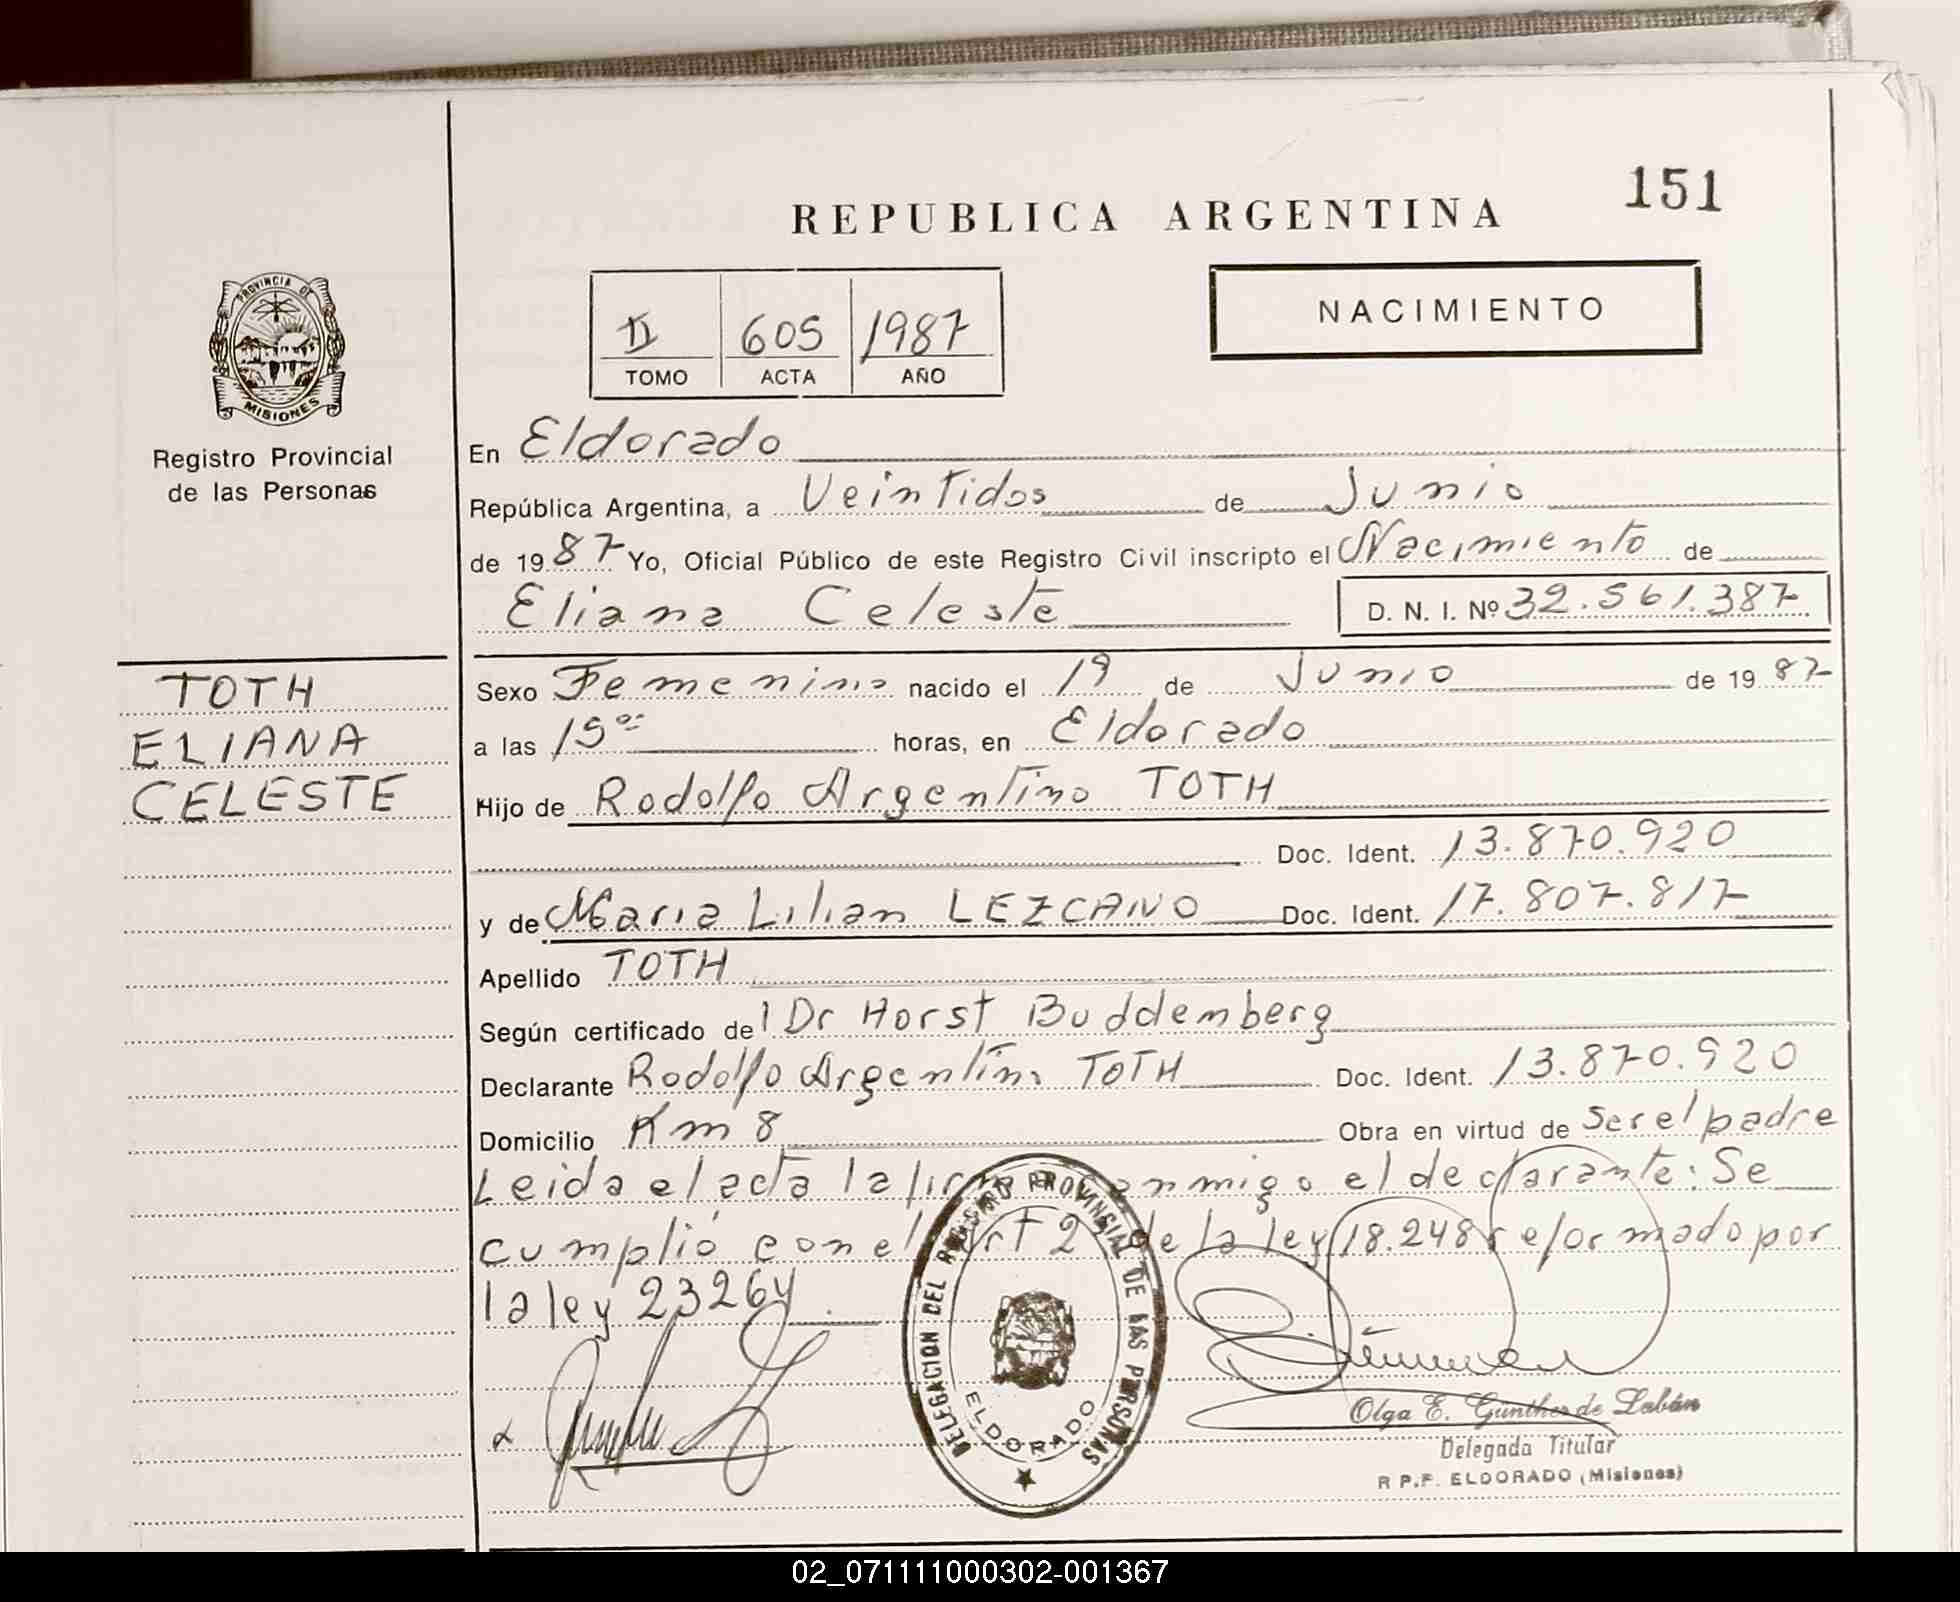 151
REPUBLICA ARGENTINA
NACIMIENTO
II 605 1987
TOMO ACTA AÑO
PROVINCIA DE
MISIONES
Registro Provincial
de las Personas
En Eldorado
República Argentina, a Veintidos de Junio
de 1987 Yo, Oficial Público de este Registro Civil inscripto el Nacimiento de
Eliana Celeste D. N. I. Nº 32.561.387
TOTH
ELIANA
CELESTE
Sexo Femenino nacido el 19 de Junio de 1987
a las 15 horas, en Eldorado
Hijo de Rodolfo Argentino TOTH
Doc. Ident. 13.870.920
y de Maria Lilian LEZCANO Doc. Ident. 17.807.817
Apellido TOTH
Según certificado del Dr Horst Buddemberg
Declarante Rodolfo Argentino TOTH Doc. Ident. 13.870.920
Domicilio Km 8 Obra en virtud de ser el padre
Leida el acta la firma conmigo el declarante: Se
cumplió con el Art 2 de la ley 18.248 reformado por
la ley 23264.
DELEGACION DEL REGISTRO PROVINCIAL DE LAS PERSONAS
ELDORADO
Olga E. Günther de Labán
Delegada Titular
R.P.F. ELDORADO (Misiones)
02_071111000302-001367